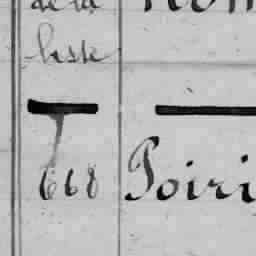 de la
liste
668 Poiri